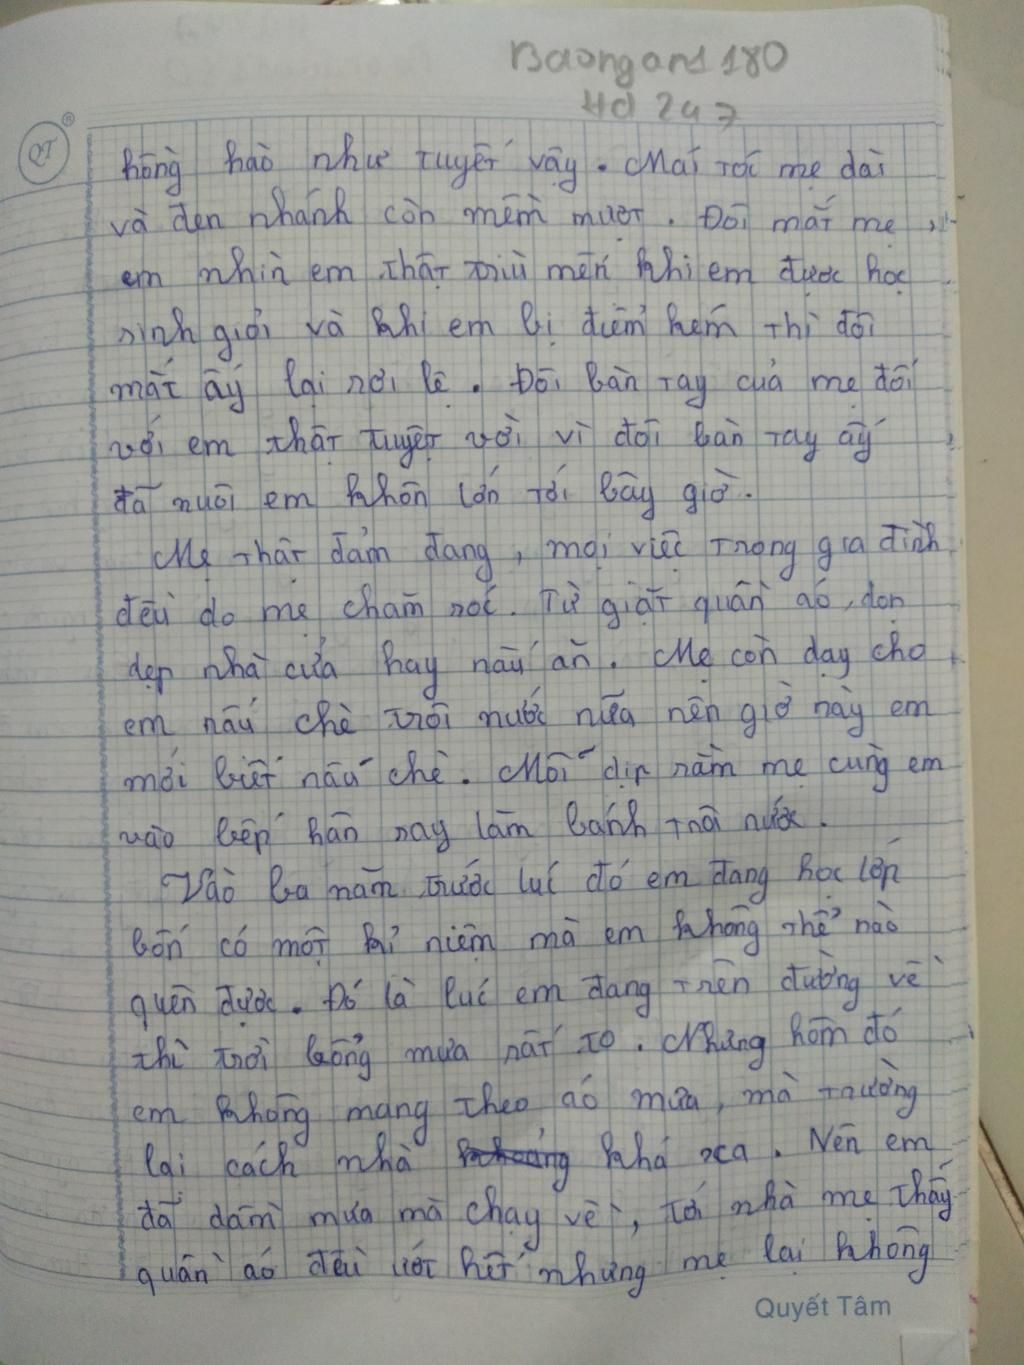 Baongan1180
Hd247
QT
hồng hào như tuyết vậy. Mái tóc mẹ dài
và đen nhánh còn mềm mượt. Đôi mắt mẹ
em nhìn em thật trìu mến khi em được học
sinh giỏi và khi em bị điểm kém thì đôi
mắt ấy lại rơi lệ. Đôi bàn tay của mẹ đối
với em thật tuyệt vời vì đôi bàn tay ấy
đã nuôi em khôn lớn tới bây giờ.
Mẹ thật đảm đang, mọi việc trong gia đình
đều do mẹ chăm sóc. Từ giặt quần áo, dọn
dẹp nhà cửa hay nấu ăn. Mẹ còn dạy cho
em nấu chè trôi nước nữa nên giờ này em
mới biết nấu chè. Mỗi dịp rằm mẹ cùng em
vào bếp hăn say làm bánh trôi nước.
Vào ba năm trước lúc đó em đang học lớp
bốn có một kỉ niệm mà em không thể nào
quên được. Đó là lúc em đang trên đường về
thì trời bổng mưa rất to. Nhưng hôm đó
em không mang theo áo mưa, mà trường
lại cách nhà khá xa. Nên em
đã dầm mưa mà chạy về, tới nhà mẹ thấy
quần áo đều ướt hết nhưng mẹ lại không
Quyết Tâm